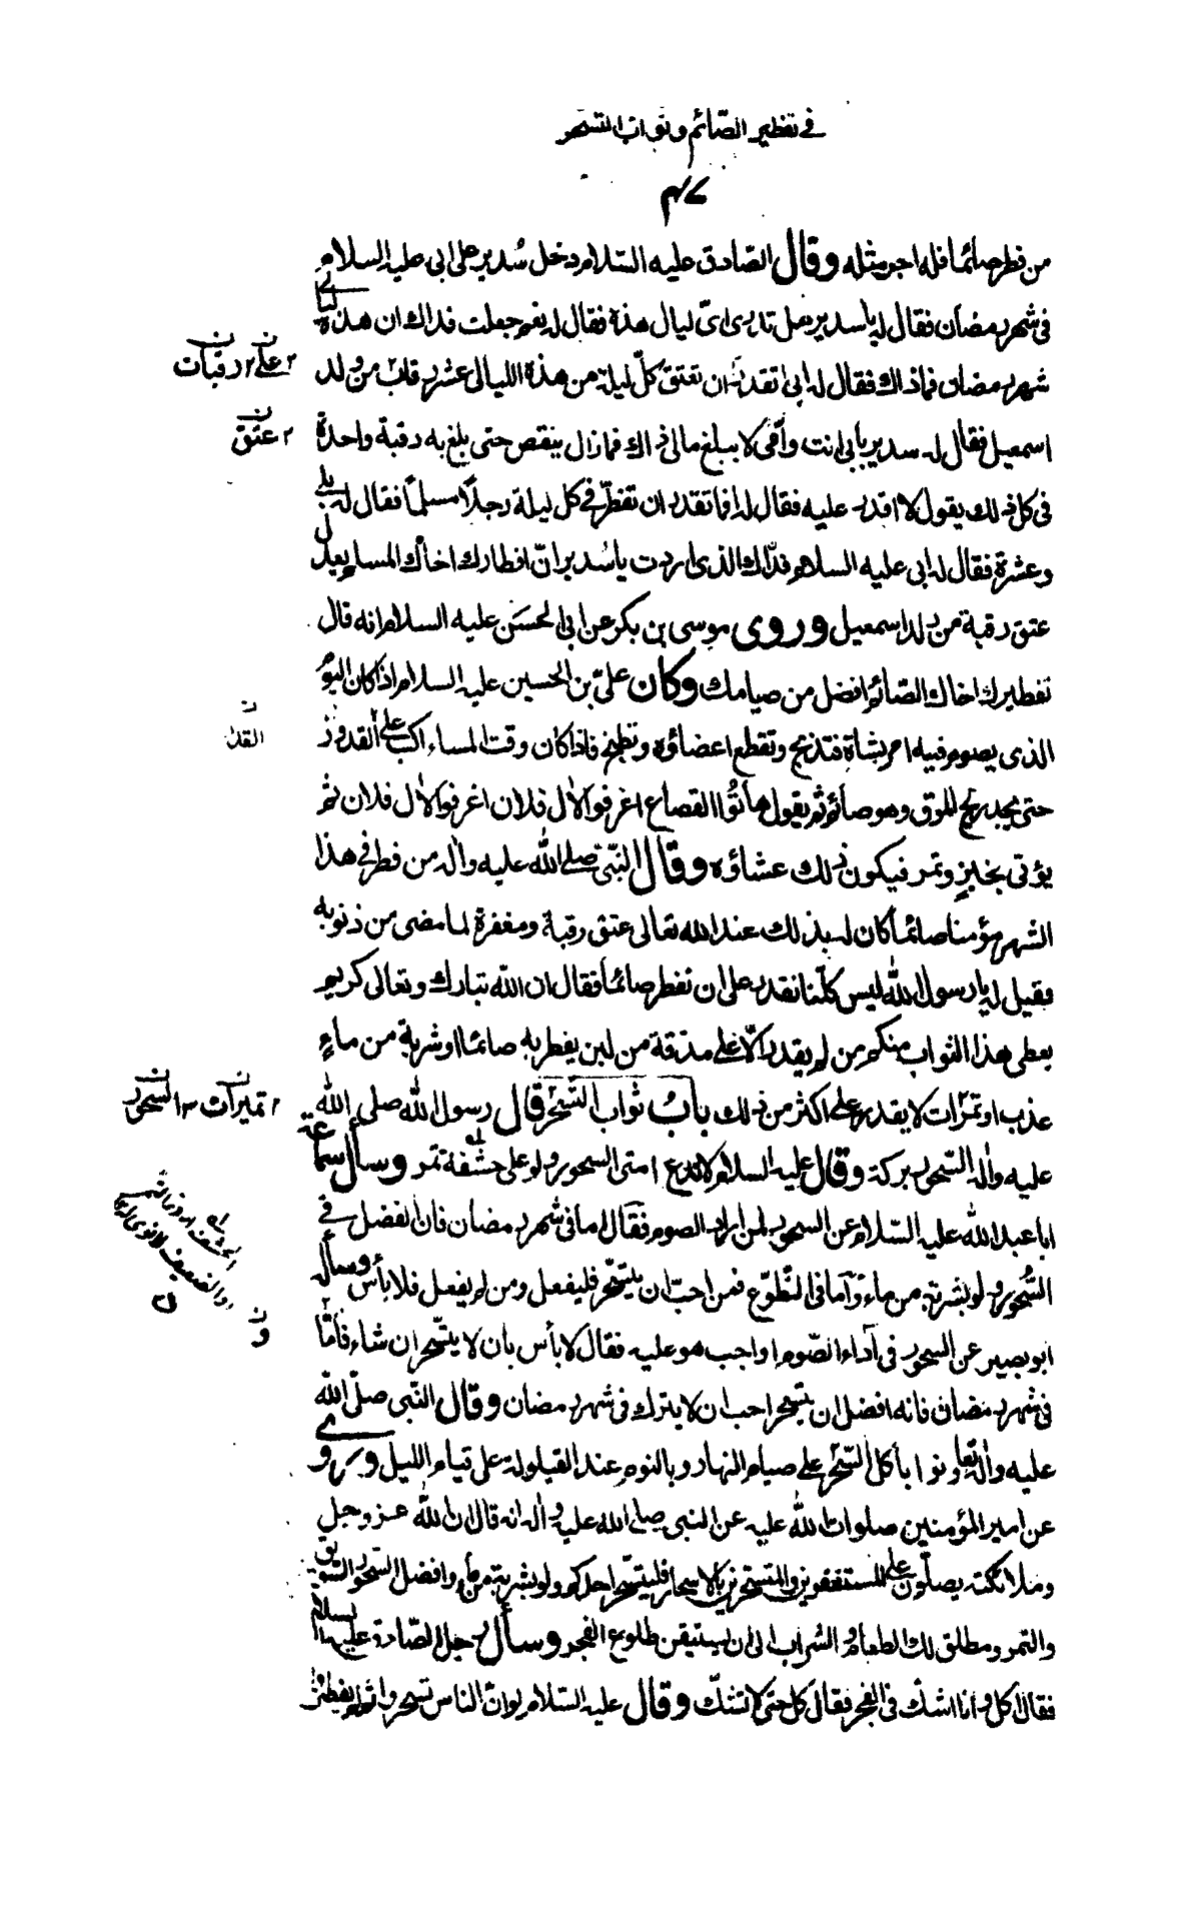 في تفطير الصّائم وثواب التسحر
٤٧
من فطر صائما فله اجر مثله وقال الصّادق عليه السّلام دخل سُدير على ابى عليه السلام
فى شهر رمضان فقال له يا سدير هل تدرى اىّ ليال هذه فقال له نعم جعلت فداك ان هذه ليالى
شهر رمضان فماذاك فقال له ابى اتقدر ان تعتق كلّ ليلة من هذه الليالى عشر رقاب من ولد
اسمعيل فقال له سدير بابى انت وامّى لا يبلغ مالى ذاك فما زال ينقص حتى بلغ به رقبة واحدة
فى كل ذلك يقول لا اقدر عليه فقال له افما تقدر ان تفطّر في كل ليلة رجلاً مسلماً فقال له بلى
وعشرة فقال له ابى عليه السلام فذاك الذى اردت يا سُدير انّ افطارك اخاك المسلم يعدل
عتق رقبة من ولد اسمعيل وروى موسى بن بكر عن ابى الحسَن عليه السلام انه قال
تفطيرك اخاك الصّائم افضل من صيامك وكان علىّ بن الحسين عليه السلام اذا كان اليوم
الذى يصوم فيه امر بشاة فتذبح وتقطع اعضاؤه وتطبخ فاذا كان وقت المساء اكب على القدور
حتى يجد ريح المرق وهو صائم ثم يقول هاتُوا القصاع اغرفوا لاٰل فلان اغرفوا لاٰل فلان ثم
يؤتى بخبز وتمر فيكون ذلك عشاؤه وقال النّبىّ صلى الله عليه واٰله من فطر في هذا
الشهر مؤمنا صائماً كان له بذلك عند الله تعالى عتق رقبة ومغفرة لما مضى من ذنوبه
فقيل له يا رسول الله ليس كلّنا نقدر على ان نفطر صائماً فقال ان الله تبارك وتعالى كريم
يعطى هذا الثواب منكم من لم يقدر الّا على مذقة من لبن يفطر به صائما او شربة من ماءٍ
عذب او تمرَات لا يقدر على اكثر من ذلك بابُ ثواب السّحر قال رسول الله صلى الله
عليه واٰله السّحور بركة وقال عليه السلام لا تدع امتى السحور ولو على حشفة تمر وسأل سماعة
ابا عبد الله عليه السّلام عن السحور لمن اراد الصوم فقال اما فى شهر رمضان فان الفضل في
السُّحور ولو بشربة من ماء وامّا فى التّطوّع فمن احبّ ان يتسحّر فليفعل ومن لم يفعل فلا بأس وسأله
ابو بصير عن السحور فى اداء الصّوم اواجب هو عليه فقال لا بأس بان لا يتسّحر ان شاء فأمّا
فى شهر رمضان فانه افضل ان يتسحر احب ان لا يترك فى شهر رمضان وقال النّبى صلّى الله
عليه واٰله تعاونوا بأكل السّحر على صيام النهار وبالنوم عند القيلولة على قيام الليل وروى
عن امير المؤمنين صلوات الله عليه عن النبى صلى الله عليه واٰله انه قال ان الله عز وجل
وملائكته يصلّون على المستغفرين والمتسحرين بالاسحار فليتسحّر احدكم ولو بشربة من ماء وافضل السّحور السّويق
والتمر ومطلق لك الطعام والشراب الى ان يستيقن طلوع الفجر وسأل رجل الصّادق عليه السلام
فقال اكل وانا اشك فى الفجر فقال كل حتى لا تشكّ وقال عليه السّلام لو انّ الناس تسحروا ثم لم يفطروا
٢ على ٢ رقبات
٢ عتق
القدر
٢ تميرات ٣ السحور
الحشف
والضعيف
ن